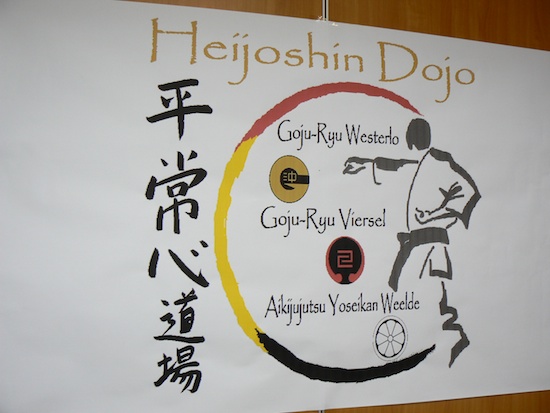 Heijoshin Dojo
平常心道場
Goju-Ryu Westerlo
沖
Goju-Ryu Viersel
Aikijujutsu Yoseikan Weelde